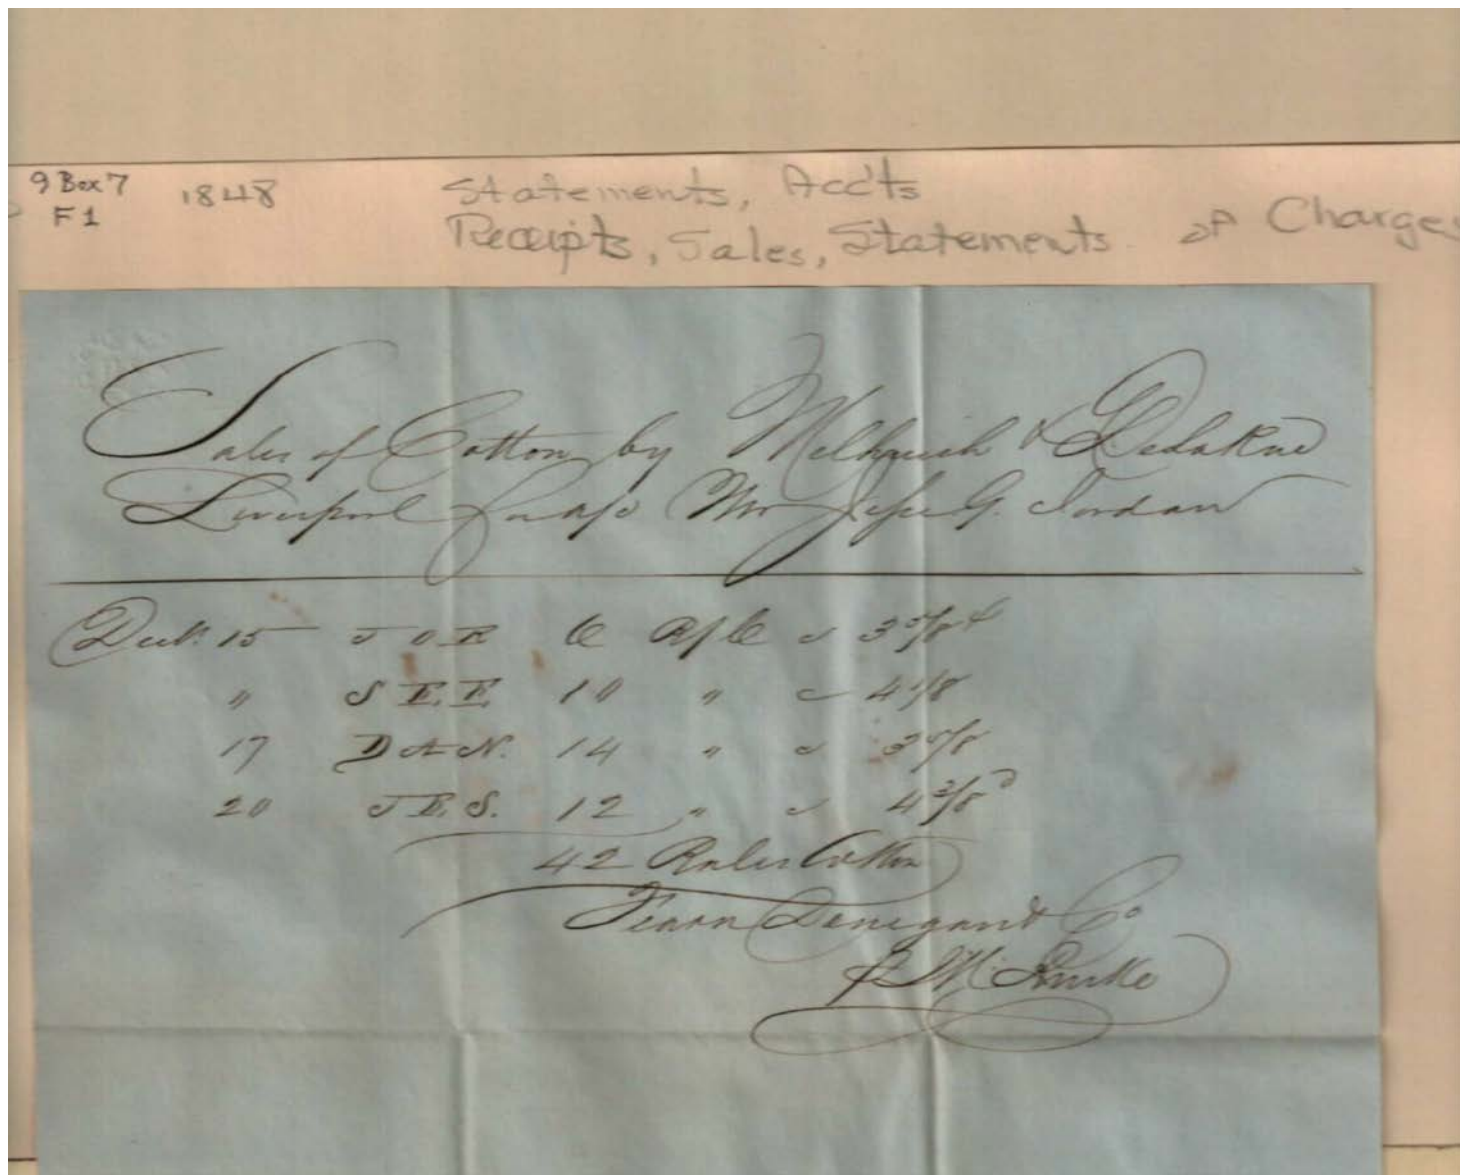 9 Box 7
F1
1848
Statements, Acc'ts
Receipts, Sales, Statements of Charges
Sales of Cotton by Melhuish &
Liverpool for a/c Mr Jesse G. Jordan
Decr. 15 J O R 6 B/C @ 3 5/8 d
" S E E 10 " @ 4 1/8
17 D A N. 14 " @ 3 5/8
20 J E S. 12 " @ 4 3/8 d
42 Bales Cotton
Fearn Donegan & Co